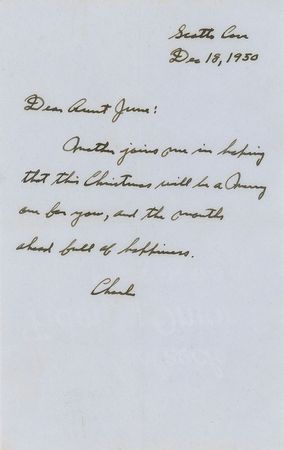 Scotts Cor
Dec 18, 1950
Dear Aunt June:
Mother joins me in hoping
that this Christmas will be a Merry
one for you, and the months
ahead full of happiness.
Charles